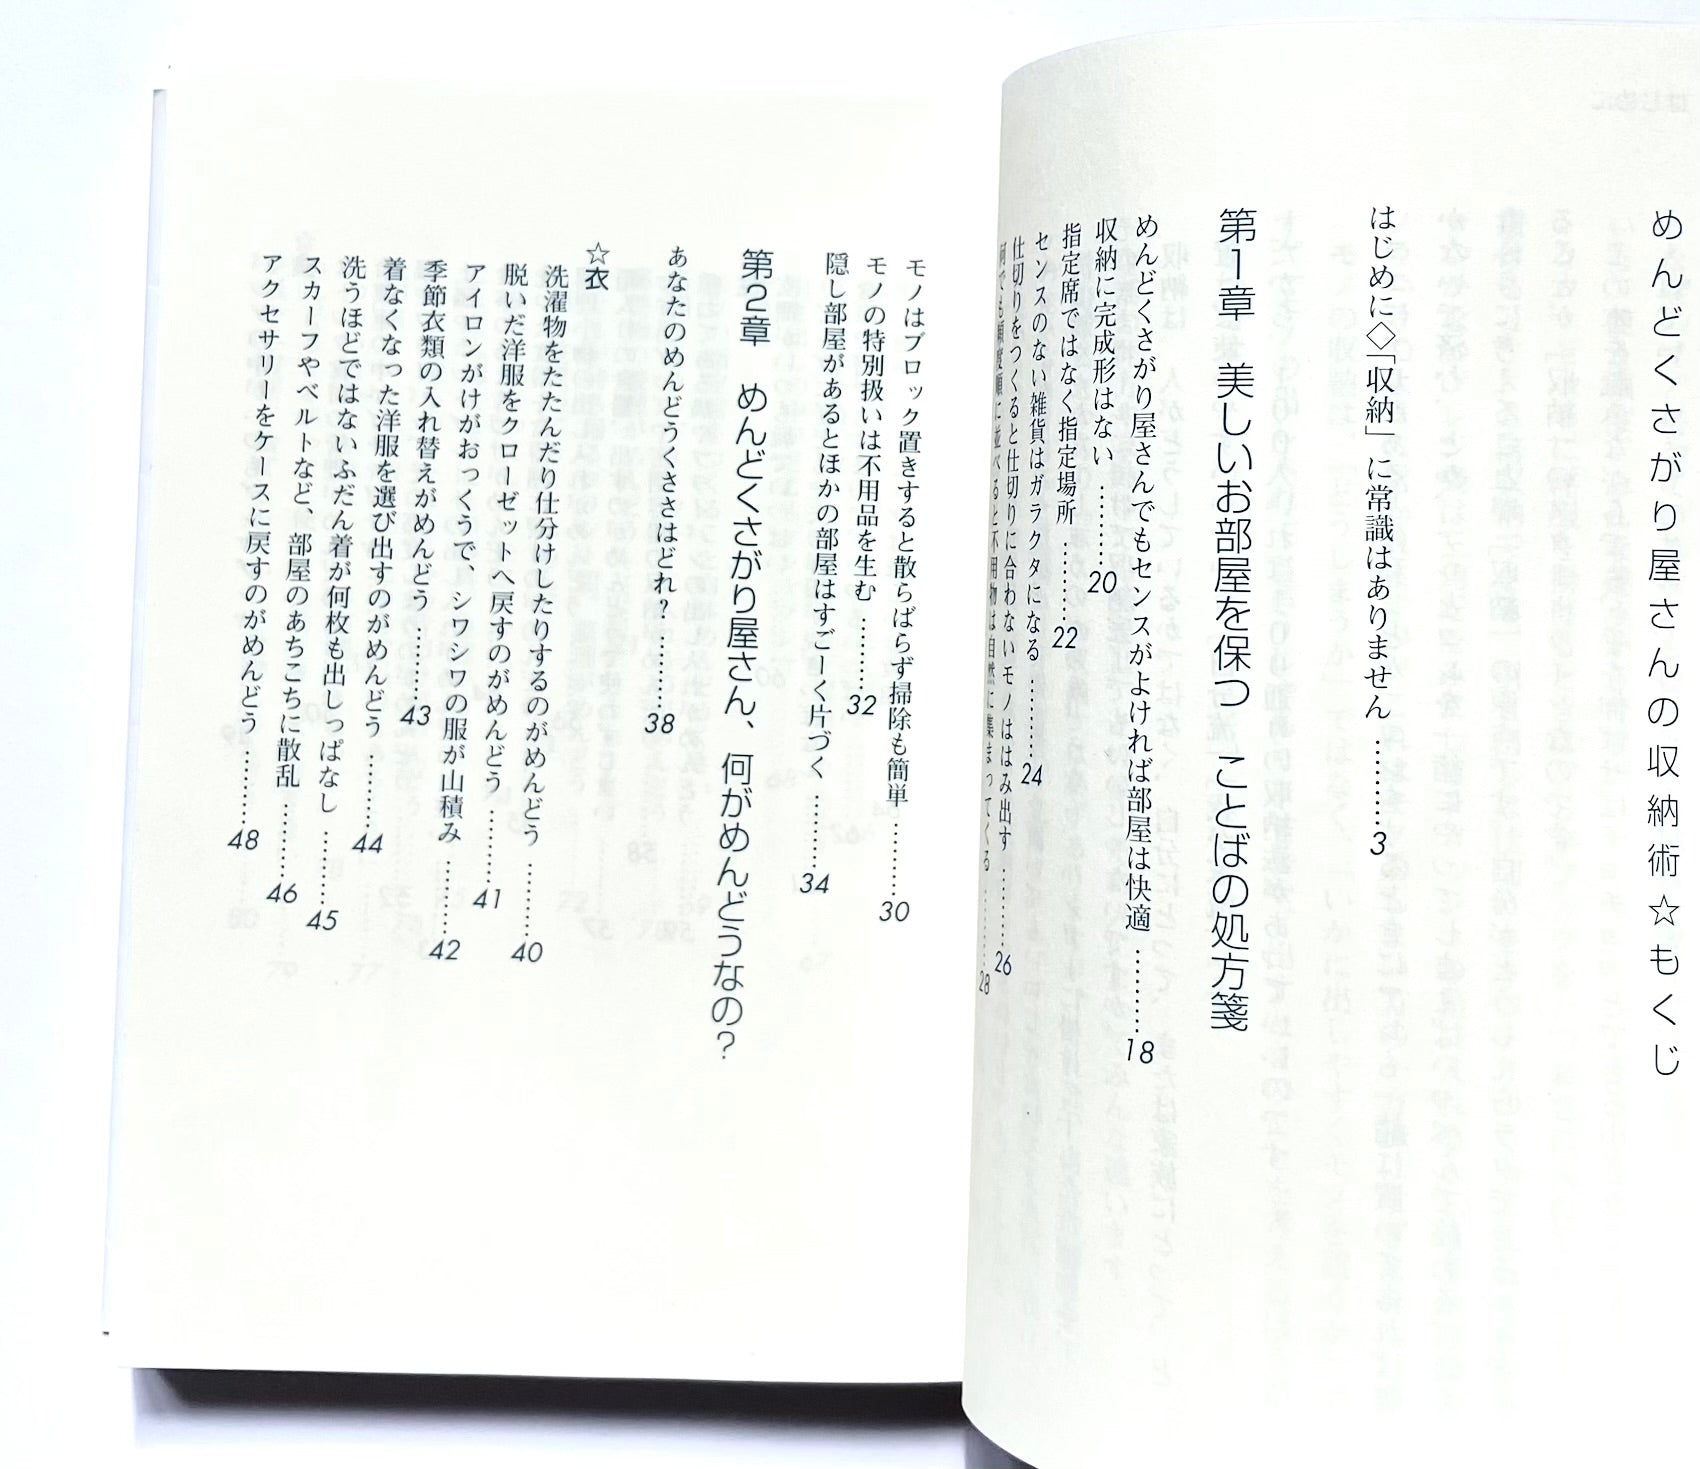 めんどくさがり屋さんの収納術☆もくじ
はじめに◇「収納」に常識はありません ………3
第1章 美しいお部屋を保つ ことばの処方箋
めんどくさがり屋さんでもセンスがよければ部屋は快適 ………18
収納に完成形はない ………20
指定席ではなく指定場所 ………22
センスのない雑貨はガラクタになる ………24
仕切りをつくると仕切りに合わないモノははみ出す ………26
何でも頻度順に並べると不用物は自然に集まってくる ………28
モノはブロック置きすると散らばらず掃除も簡単 ………30
モノの特別扱いは不用品を生む ………32
隠し部屋があるとほかの部屋はすごーく片づく ………34
第2章 めんどくさがり屋さん、何がめんどうなの?
あなたのめんどうくささはどれ? ………38
☆衣
洗濯物をたたんだり仕分けしたりするのがめんどう ………40
脱いだ洋服をクローゼットへ戻すのがめんどう ………41
アイロンがけがおっくうで、シワシワの服が山積み ………42
季節衣類の入れ替えがめんどう ………43
着なくなった洋服を選び出すのがめんどう ………44
洗うほどではないふだん着が何枚も出しっぱなし ………45
スカーフやベルトなど、部屋のあちこちに散乱 ………46
アクセサリーをケースに戻すのがめんどう ………48